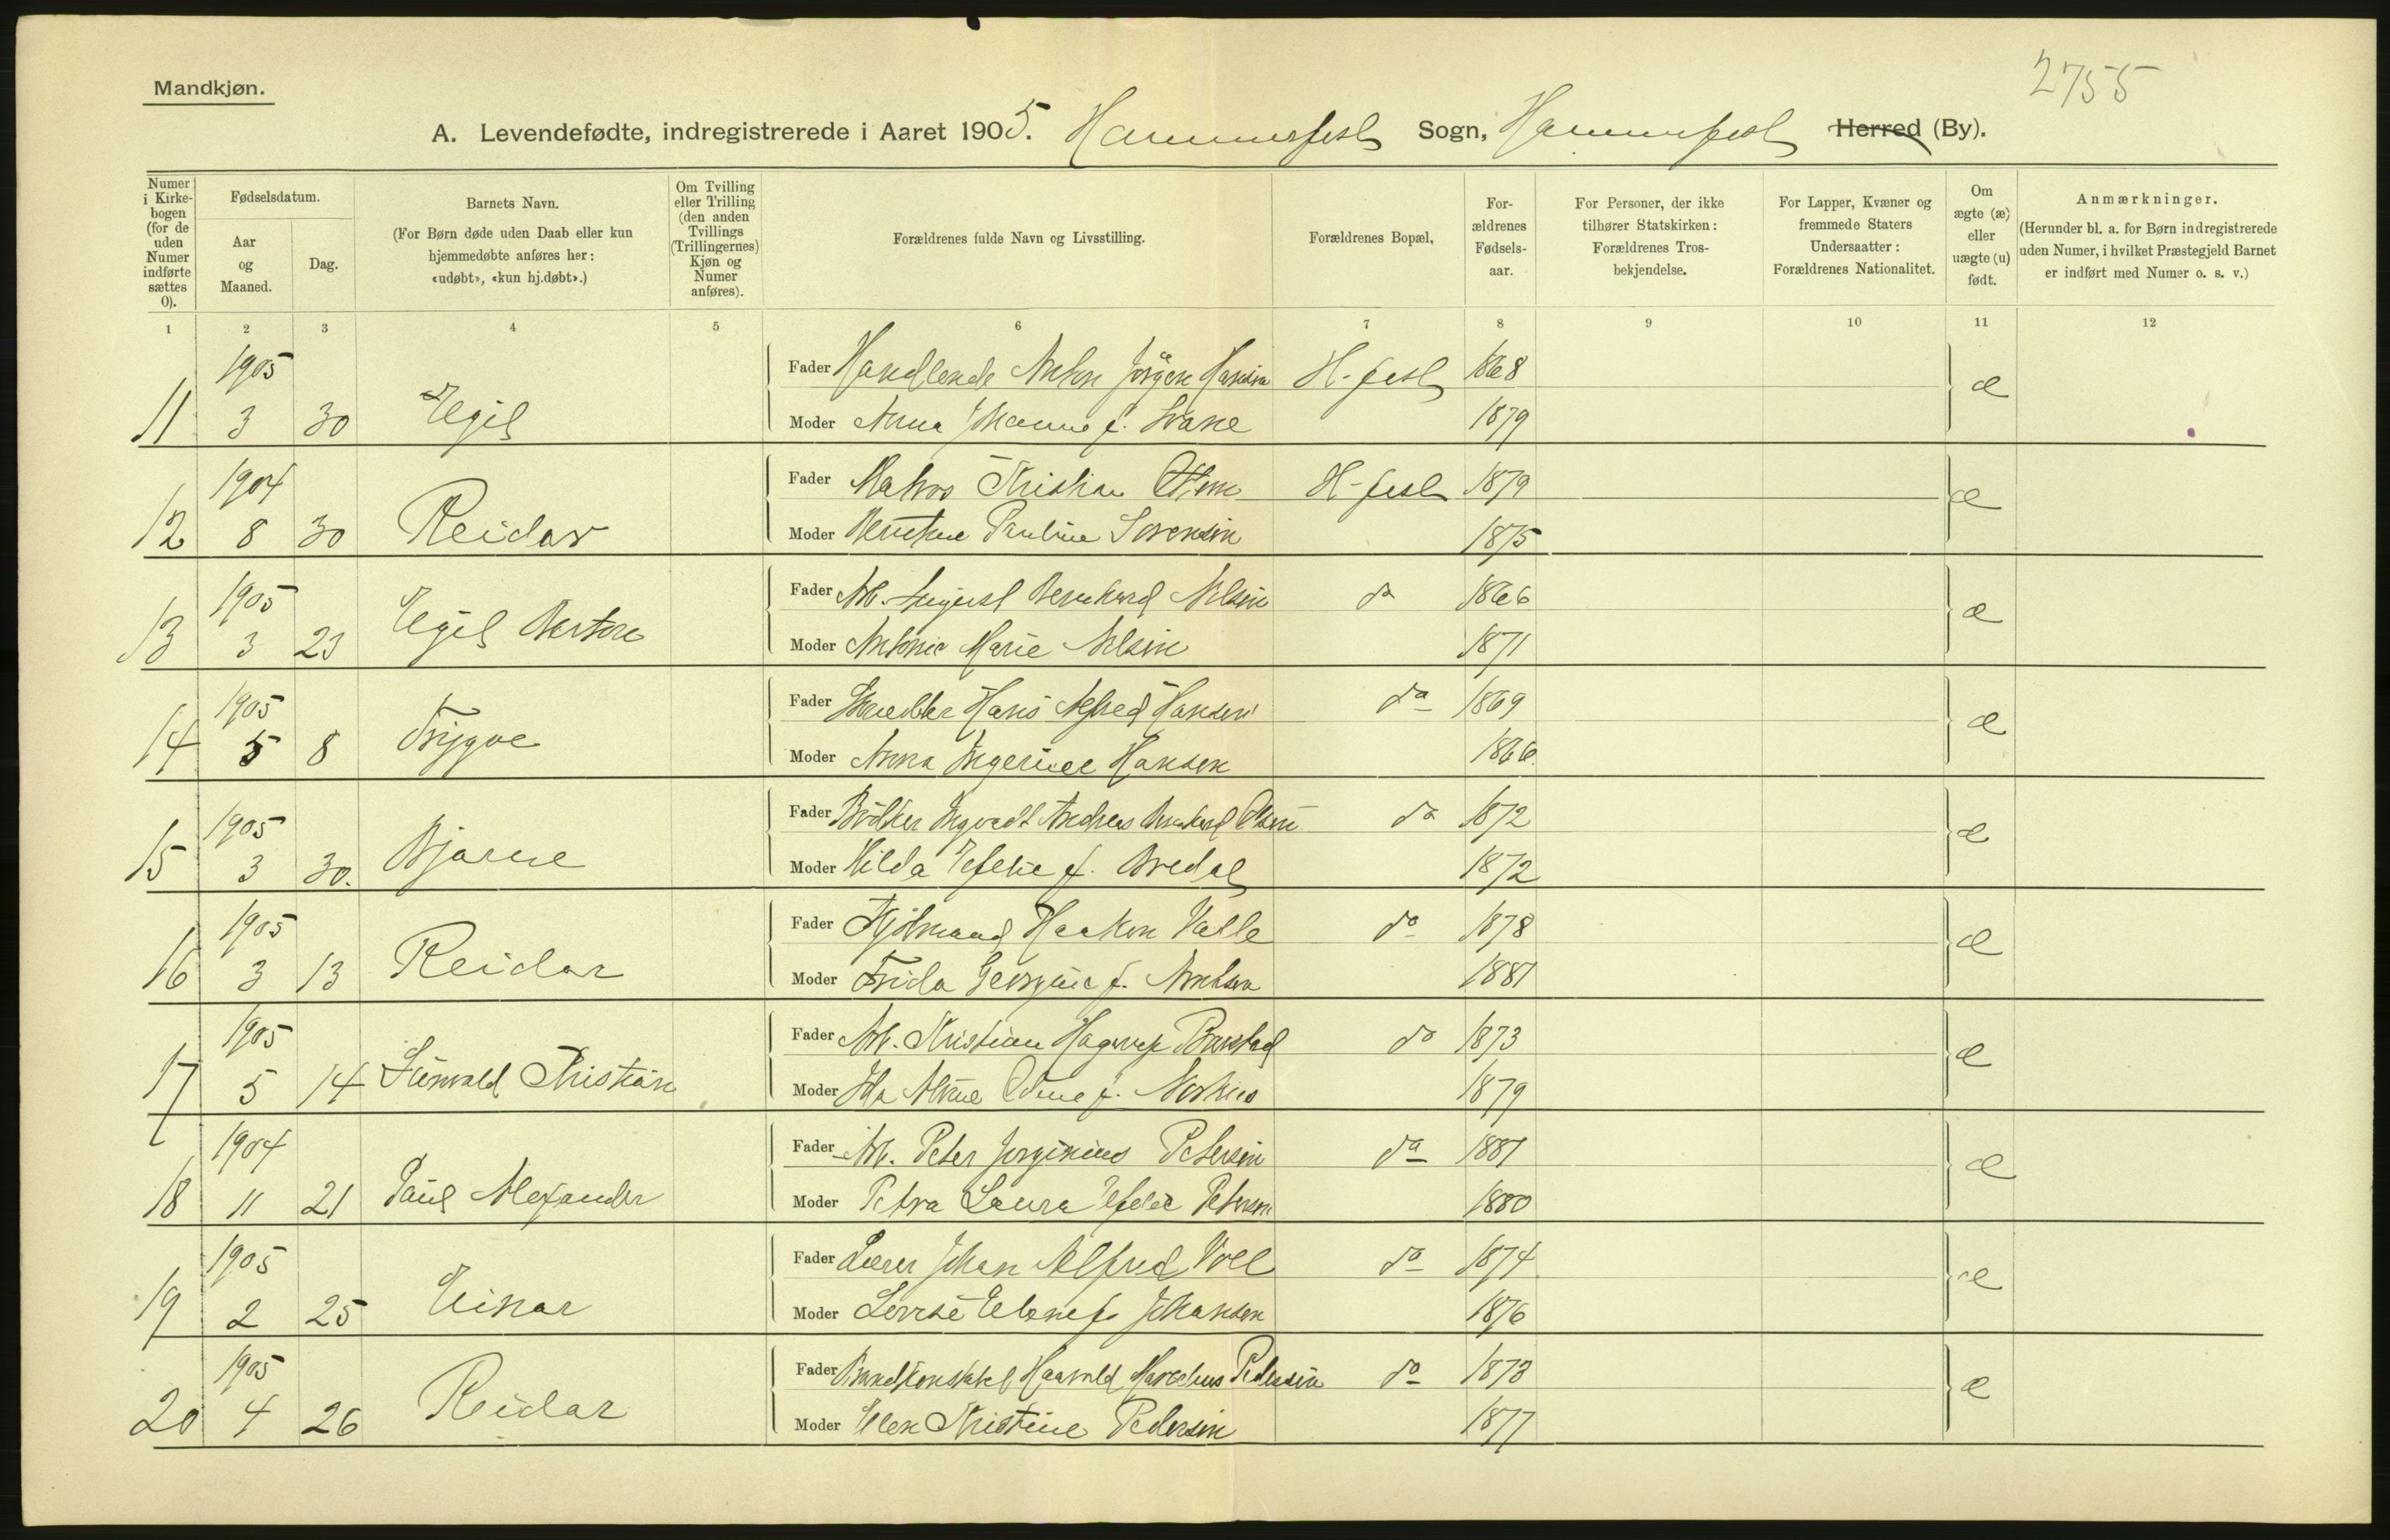 2755
Mandkjøn.
A. Levendefødte, indregistrerede i Aaret 1905. Hammerfest Sogn, Hammerfest Herred (By).
Numer i Kirkebogen (for de uden Numer indførte sættes 0).
Fødselsdatum.
Aar og Maaned.
Dag.
Barnets Navn.
(For Børn døde uden Daab eller kun hjemmedøbte anføres her: «udøbt», «kun hj.døbt».)
Om Tvilling eller Trilling (den anden Tvillings (Trillingernes) Kjøn og Numer anføres).
Forældrenes fulde Navn og Livsstilling.
Forældrenes Bopæl,
Forældrenes Fødselsaar.
For Personer, der ikke tilhører Statskirken: Forældrenes Trosbekjendelse.
For Lapper, Kvæner og fremmede Staters Undersaatter: Forældrenes Nationalitet.
Om ægte (æ) eller uægte (u) født.
Anmærkninger.
(Herunder bl. a. for Børn indregistrerede uden Numer, i hvilket Præstegjeld Barnet er indført med Numer o. s. v.)
1 2 3 4 5 6 7 8 9 10 11 12
1905 Fader Handlende Anton Jörgen Hansen H-fest 1868 æ
11 3 30 Egil Moder Anna Johanne f. Svane 1879
1904 Fader Matros Kristian Olsen H-fest 1879 æ
12 8 30 Reidar Moder Pauline Sorensen 1875
1905 Fader Arb. August Bernhard Nilsen do 1866 æ
13 3 23 Egil Moder Antonie Marie Nilsen 1871
1905 Fader Hans Alfred Hansen do 1869 æ
14 5 8 Trygve Moder Anna Ingerine Hansen 1866.
1905 Fader Bödker Ingvald Andreas Bernhard Olsen do 1872 æ
15 3 30. Bjarne Moder Hilda Efelie f. Bredal 1872
1905 Fader Haakon Valle do 1878 æ
16 3 13 Reidar Moder Frida Georgine f. 1881
1905 Fader Arb. Kristian Hagerup do 1873 æ
17 5 14 Kristian Moder f. 1879
1904 Fader Arb. Peter Jorginius Petersen do 1881 æ
18 11 21 Paul Alexander Moder Petra Laura Efelie Petersen 1880
1905 Fader Lærer Johan Alfred Voll do 1874 æ
19 2 25 Einar Moder Lovise f. Johansen 1876
1905 Fader Brandkonstabel Haavald Marelius Pedersen do 1873 æ
20 4 26 Reidar Moder Elen Kristine Pedersen 1877